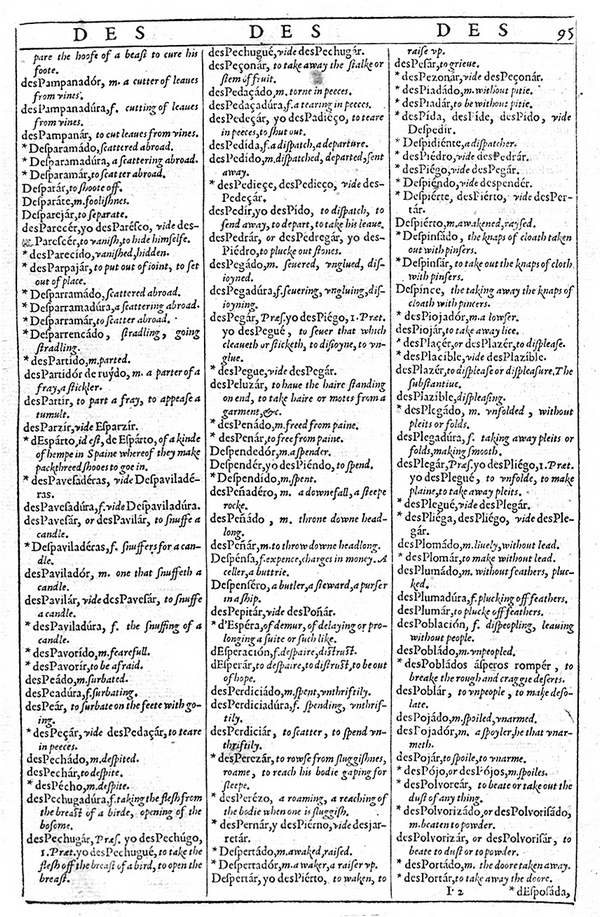 DES DES DES 95
pare the hoofe of a beast to cure his
foote.
desPampanadór, m. a cutter of leaues
from vines.
desPampanadúra, f. cutting of leaues
from vines.
desPampanár, to cut leaues from vines.
* Desparamádo, scattered abroad.
* Desparamadúra, a scattering abroad.
* Desparamár, to scatter abroad.
Desparár, to shoote off.
Desparáte, m. foolishnes.
Desparejár, to separate.
desParecér, yo desParésco, vide des-
Parescér, to vanish, to hide himselfe.
* desParecido, vanished, hidden.
* desParpajár, to put out of ioynt, to set
out of place.
* Desparramádo, scattered abroad.
* Desparramadúra, a scattering abroad.
* Desparramár, to scatter abroad.
* Desparrencádo, stradling, going
stradling.
* desPartido, m. parted.
desPartidór de ruýdo, m. a parter of a
fray, a stickler.
desPartír, to part a fray, to appease a
tumult.
desParzír, vide Esparzír.
* dEspárto, id est, de Espárto, of a kinde
of hempe in Spaine whereof they make
packthreed shooes to goe in.
* desPavesadéras, vide Despaviladé-
ras.
desPavesadúra, f. vide Despaviladúra.
desPavesár, or desPavilár, to snuffe a
candle.
* Despaviladéras, f. snuffers for a can-
dle.
desPaviladór, m. one that snuffeth a
candle.
desPavilár, vide desPavesár, to snuffe
a candle.
* desPaviladúra, f. the snuffing of a
candle.
* desPavorído, m. fearefull.
* desPavorír, to be afraid.
desPeádo, m. surbated.
desPeadúra, f. surbating.
desPeár, to surbate on the feete with go-
ing.
* desPeçár, vide desPedaçár, to teare
in peeces.
desPechádo, m. despited.
desPechár, to despite.
* desPécho, m. despite.
desPechugadúra, f. taking the flesh from
the breast of a birde, opening of the
bosome.
desPechugár, Præs. yo desPechúgo,
1. Præt. yo desPechugué, to take the
flesh off the breast of a bird, to open the
breast.
desPechugué, vide desPechugár.
desPeçonár, to take away the stalke or
stem of fruit.
desPedaçádo, m. torne in peeces.
desPedaçadúra, f. a tearing in peeces.
desPedeçár, yo desPadiéço, to teare
in peeces, to shut out.
desPedída, f. a dispatch, a departure.
desPedído, m. dispatched, departed, sent
away.
* desPedieçe, desPedieço, vide des-
Pedeçár.
desPedír, yo desPído, to dispatch, to
send away, to depart, to take his leaue.
desPedrár, or desPedregár, yo des-
Piédro, to plucke out stones.
desPegádo, m. seuered, vnglued, dis-
ioyned.
desPegadúra, f. seuering, vngluing, dis-
ioyning.
desPegár, Præs. yo desPiégo, 1. Præt.
yo desPegué, to seuer that which
cleaueth or sticketh, to disioyne, to vn-
glue.
* desPegue, vide desPegár.
desPeluzár, to haue the haire standing
on end, to take haire or motes from a
garment, &c.
* desPenádo, m. freed from paine.
* desPenár, to free from paine.
Despendedór, m. a spender.
Despendér, yo desPiéndo, to spend.
* Despendído, m. spent.
desPeñadéro, m. a downefall, a steepe
rocke.
desPeñádo, m. throwne downe head-
long.
desPeñár, m. to throw downe headlong.
Despénsa, f. expence, charges in money. A
celler, a buttrie.
Despenséro, a butler, a steward, a purser
in a ship.
desPepitár, vide desPoñár.
* d'Espéra, of demur, of delaying or pro-
longing a suite or such like.
dEsperación, f. despaire, distrust.
dEsperár, to despaire, to distrust, to be out
of hope.
desPerdiciádo, m. spent, vnthriftily.
desPerdiciadúra, f. spending, vnthrif-
tily.
desPerdiciár, to scatter, to spend vn-
thriftily.
* desPerezár, to rowse from sluggishnes,
roame, to reach his bodie gaping for
sleepe.
* desPerézo, a roaming, a reaching of
the bodie when one is sluggish.
* desPernár, y desPiérno, vide desjar-
retár.
* Despertádo, m. awaked, raised.
* Despertadór, m. a waker, a raiser vp.
Despertár, yo desPiérto, to waken, to
raise vp.
desPesár, to grieue.
* desPezonár, vide desPeçonár.
* desPiadádo, m. without pitie.
* desPiadár, to be without pitie.
* desPída, desPíde, desPído, vide
Despedír.
* Despidiénte, a dispatcher.
* desPiédro, vide desPedrár.
* desPiégo, vide desPegár.
* Despiéndo, vide despendér.
* Despiérte, desPiérto, vide desPer-
tár.
Despiérto, m. awakened, raysed.
* Despinsádo, the knaps of cloath taken
out with pinsers.
* Despinsár, to take out the knaps of cloth
with pinsers.
Despínce, the taking away the knaps of
cloath with pincers.
* desPiojadór, m. a lowser.
desPiojár, to take away lice.
* desPlaçér, or desPlazér, to displease.
* desPlacible, vide desPlazíble.
desPlazér, to displease or displeasure. The
substantiue.
desPlazíble, displeasing.
* desPlegádo, m. vnfolded, without
pleits or folds.
desPlegadúra, f. taking away pleits or
folds, making smooth.
desPlegár, Præs. yo desPliégo, 1. Præt.
yo desPlegué, to vnfolde, to make
plaine, to take away pleits.
* desPlegué, vide desPlegár.
* desPliéga, desPliégo, vide desPle-
gár.
desPlomádo, m. liuely, without lead.
* desPlomár, to make without lead.
desPlumádo, m. without feathers, pluc-
ked.
desPlumadúra, f. plucking off feathers.
desPlumár, to plucke off feathers.
desPoblación, f. dispeopling, leauing
without people.
desPobládo, m. vnpeopled.
* desPobládos ásperos rompér, to
breake the rough and craggie deserts.
desPoblár, to vnpeople, to make deso-
late.
desPojádo, m. spoiled, vnarmed.
desPojadór, m. a spoyler, he that vnar-
meth.
desPojár, to spoile, to vnarme.
* desPójo, or desPójos, m. spoiles.
* desPolvoreár, to beate or take out the
dust of any thing.
* desPolvorizádo, or desPolvorisádo,
m. beaten to powder.
desPolvorizár, or desPolvorisár, to
beate to dust or to powder.
* desPortádo, m. the doore taken away.
* desPortár, to take away the doore.
I 2 * dEsposáda,